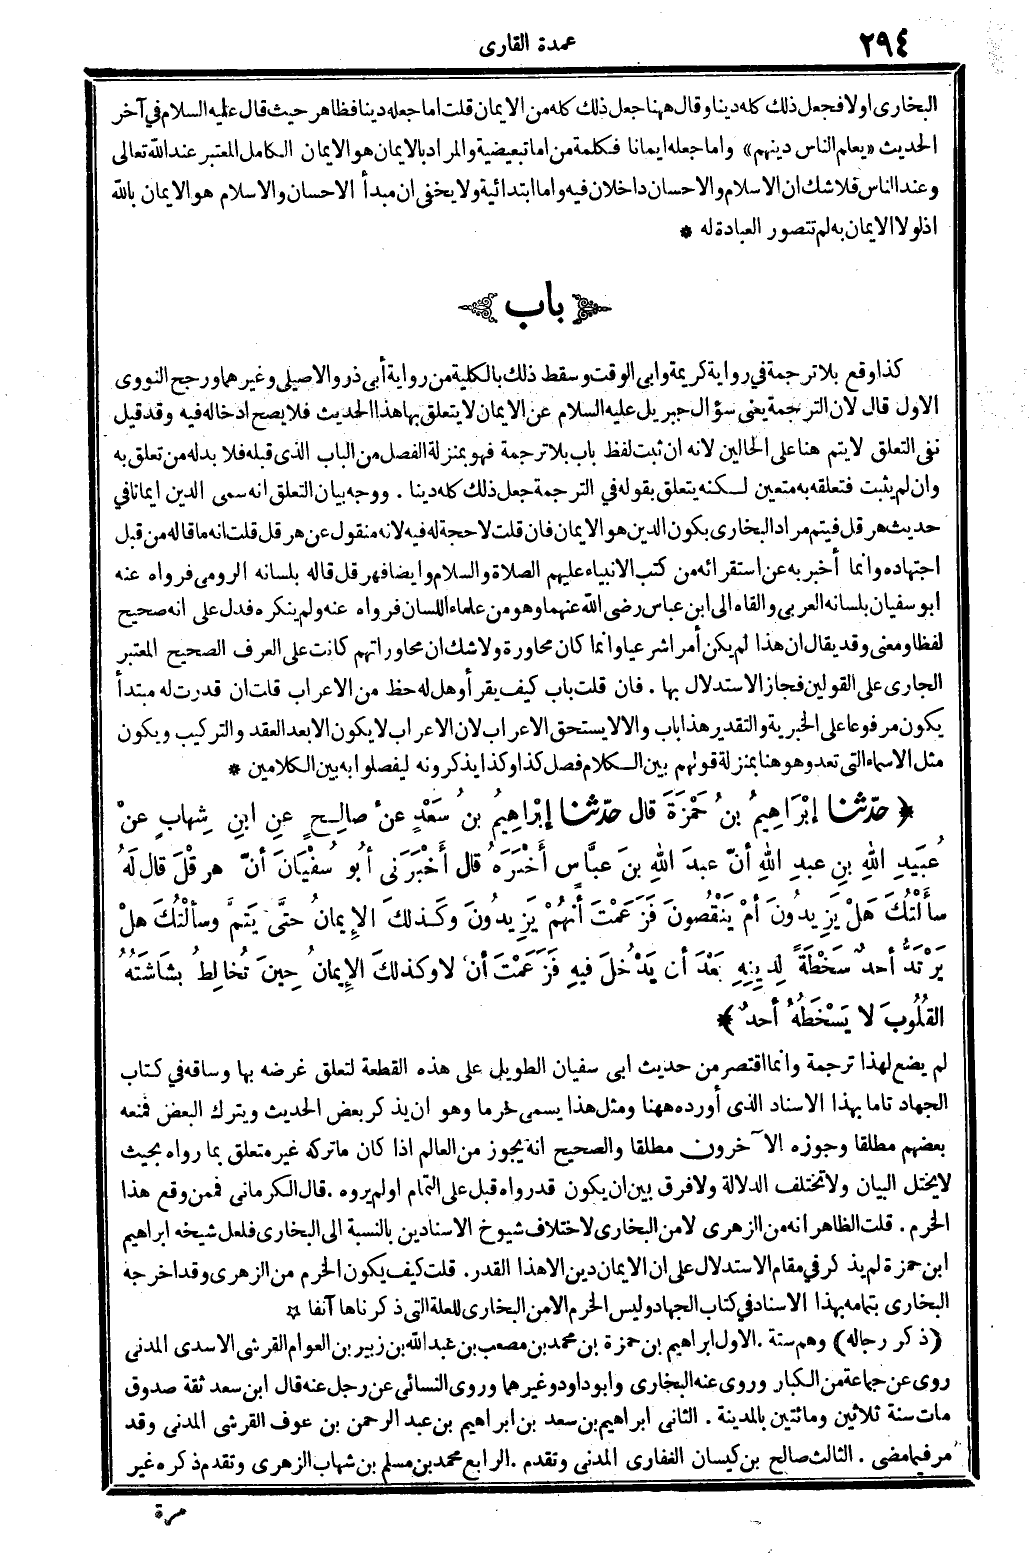 ٢٩٤
عمدة القارى
البخارى اولا فجعل ذلك كله دينا وقال ههنا جعل ذلك كله من الايمان قلت اما جعله دينا فظاهر حيث قال عليه السلام فى آخر
الحديث «يعلم الناس دينهم» واما جعله ايمانا فكلمة من اما تبعيضية والمراد بالايمان هو الايمان الكامل المعتبر عند الله تعالى
وعند الناس فلا شك ان الاسلام والاحسان داخلان فيه واما ابتدائية ولا يخفى ان مبدأ الاحسان والاسلام هو الايمان بالله
اذ لولا الايمان به لم تتصور العبادة له *
باب
كذا وقع بلا ترجمة فى رواية كريمة وابى الوقت وسقط ذلك بالكلية من رواية أبى ذر والاصيلى وغيرهما ورجح النووى
الاول قال لان الترجمة يعنى سؤال جبريل عليه السلام عن الايمان لا يتعلق بها هذا الحديث فلا يصح ادخاله فيه وقد قيل
نفى التعلق لا يتم هنا على الحالين لانه ان ثبت لفظ باب بلا ترجمة فهو بمنزلة الفصل من الباب الذى قبله فلا بد له من تعلق به
وان لم يثبت فتعلقه به متعين لكنه يتعلق بقوله فى الترجمة جعل ذلك كله دينا . ووجه بيان التعلق انه سمى الدين ايمانا فى
حديث هرقل فيتم مراد البخارى بكون الدين هو الايمان فان قلت لا حجة له فيه لانه منقول عن هرقل قلت انه ما قاله من قبل
اجتهاده وانما أخبر به عن استقرائه من كتب الانبياء عليهم الصلاة والسلام وايضا فهرقل قاله بلسانه الرومى فرواه عنه
ابو سفيان بلسانه العربى والقاه الى ابن عباس رضى الله عنهما وهو من علماء اللسان فرواه عنه ولم ينكره فدل على انه صحيح
لفظا ومعنى وقد يقال ان هذا لم يكن أمرا شرعيا وانما كان محاورة ولا شك ان محاوراتهم كانت على العرف الصحيح المعتبر
الجارى على القولين فجاز الاستدلال بها . فان قلت باب كيف يقرأ وهل له حظ من الاعراب قلت ان قدرت له مبتدأ
يكون مرفوعا على الخبرية والتقدير هذا باب والا لا يستحق الاعراب لان الاعراب لا يكون الا بعد العقد والتركيب ويكون
مثل الاسماء التى تعد وهو هنا بمنزلة قولهم بين الكلام فصل كذا وكذا يذكرونه ليفصلوا به بين الكلامين *
﴿ حدّثنا إبْرَاهِيمُ بنُ حَمْزَةَ قال حدّثنا إبْرَاهِيمُ بنُ سَعْدٍ عنْ صالِحٍ عنِ ابنِ شِهابٍ عنْ
عُبَيدِ اللهِ بنِ عبدِ اللهِ أنّ عبدَ اللهِ بنَ عبَّاسٍ أَخْبَرَهُ قال أَخْبَرَنى أبُو سُفْيَانَ أنّ هرقْلَ قال لَهُ
سأَلْتُكَ هَلْ يَزِيدُونَ أمْ يَنْقُصُونَ فَزَعَمْتَ أنَّهُمْ يَزِيدُونَ وكَذلكَ الإيمانُ حتَّى يَتِمَّ وسألْتُكَ هلْ
يَرْتَدُّ أحدٌ سَخْطَةً لِدِينِهِ بَعْدَ أن يَدْخُلَ فيهِ فَزَعَمْتَ أنْ لا وكذلكَ الإيمانُ حِينَ تُخالِطُ بشاشَتُهُ
القُلُوبَ لا يَسْخَطُهُ أحدٌ ﴾
لم يضع لهذا ترجمة وانما اقتصر من حديث ابى سفيان الطويل على هذه القطعة لتعلق غرضه بها وساقه فى كتاب
الجهاد تاما بهذا الاسناد الذى أورده ههنا ومثل هذا يسمى خرما وهو ان يذكر بعض الحديث ويترك البعض فمنعه
بعضهم مطلقا وجوزه الآخرون مطلقا والصحيح انه يجوز من العالم اذا كان ما تركه غير متعلق بما رواه بحيث
لا يختل البيان ولا تختلف الدلالة ولا فرق بين ان يكون قد رواه قبل على التمام او لم يروه . قال الكرمانى فممن وقع هذا
الخرم . قلت الظاهر انه من الزهرى لا من البخارى لاختلاف شيوخ الاسنادين بالنسبة الى البخارى فلعل شيخه ابراهيم
ابن حمزة لم يذكر فى مقام الاستدلال على ان الايمان دين الا هذا القدر. قلت كيف يكون الخرم من الزهرى وقد اخرجه
البخارى بتمامه بهذا الاسناد فى كتاب الجهاد وليس الخرم الا من البخارى للعلة التى ذكرناها آنفا ☆
(ذكر رجاله) وهم ستة . الاول ابراهيم بن حمزة بن محمد بن مصعب بن عبد الله بن زبير بن العوام القرشى الاسدى المدنى
روى عن جماعة من الكبار وروى عنه البخارى وابو داود وغيرهما وروى النسائى عن رجل عنه قال ابن سعد ثقة صدوق
مات سنة ثلاثين ومائتين بالمدينة . الثانى ابراهيم بن سعد بن ابراهيم بن عبد الرحمن بن عوف القرشى المدنى وقد
مر فيما مضى . الثالث صالح بن كيسان الغفارى المدنى وتقدم . الرابع محمد بن مسلم بن شهاب الزهرى وتقدم ذكره غير
مرة